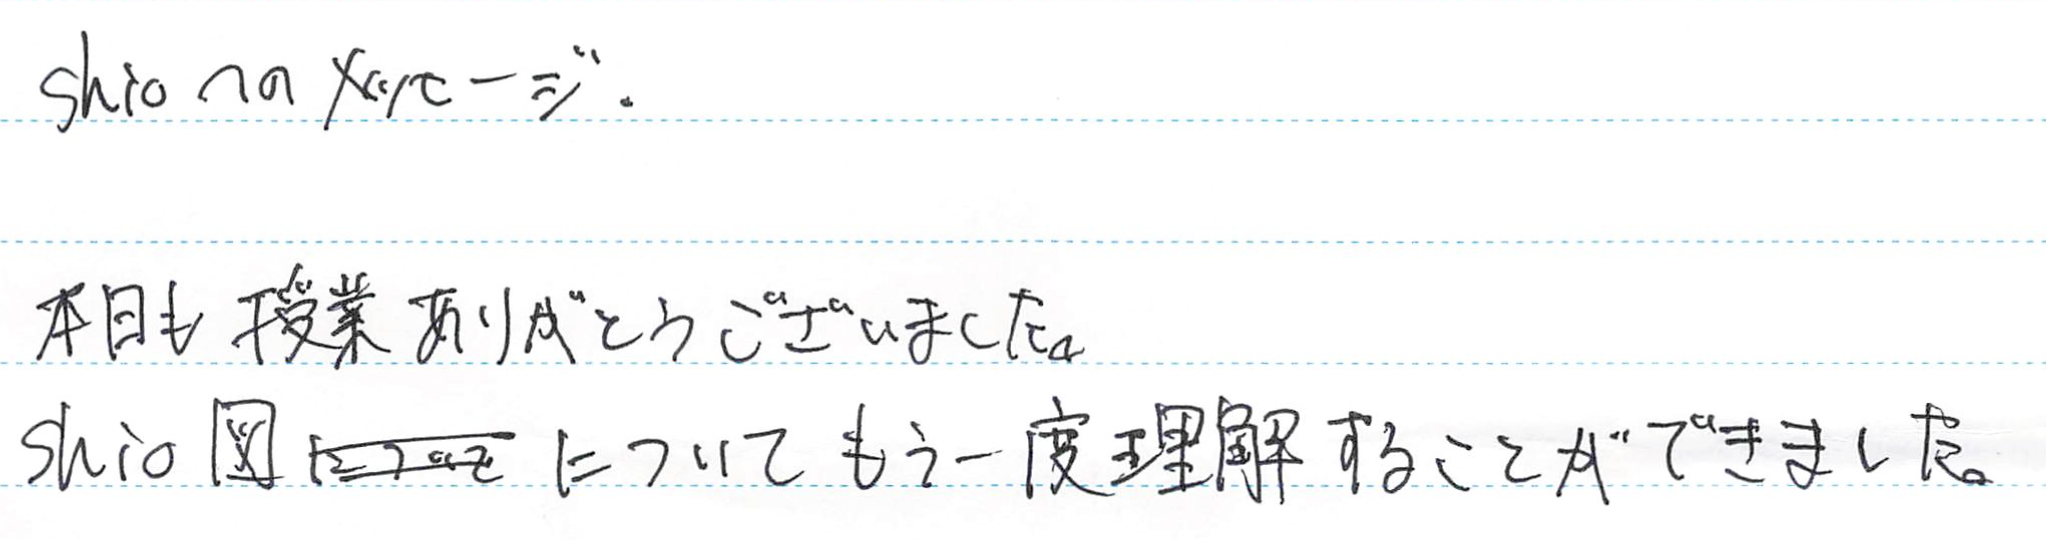 shioへのメッセージ.
本日も授業ありがとうございました。
shio図についてもう一度理解することができました。